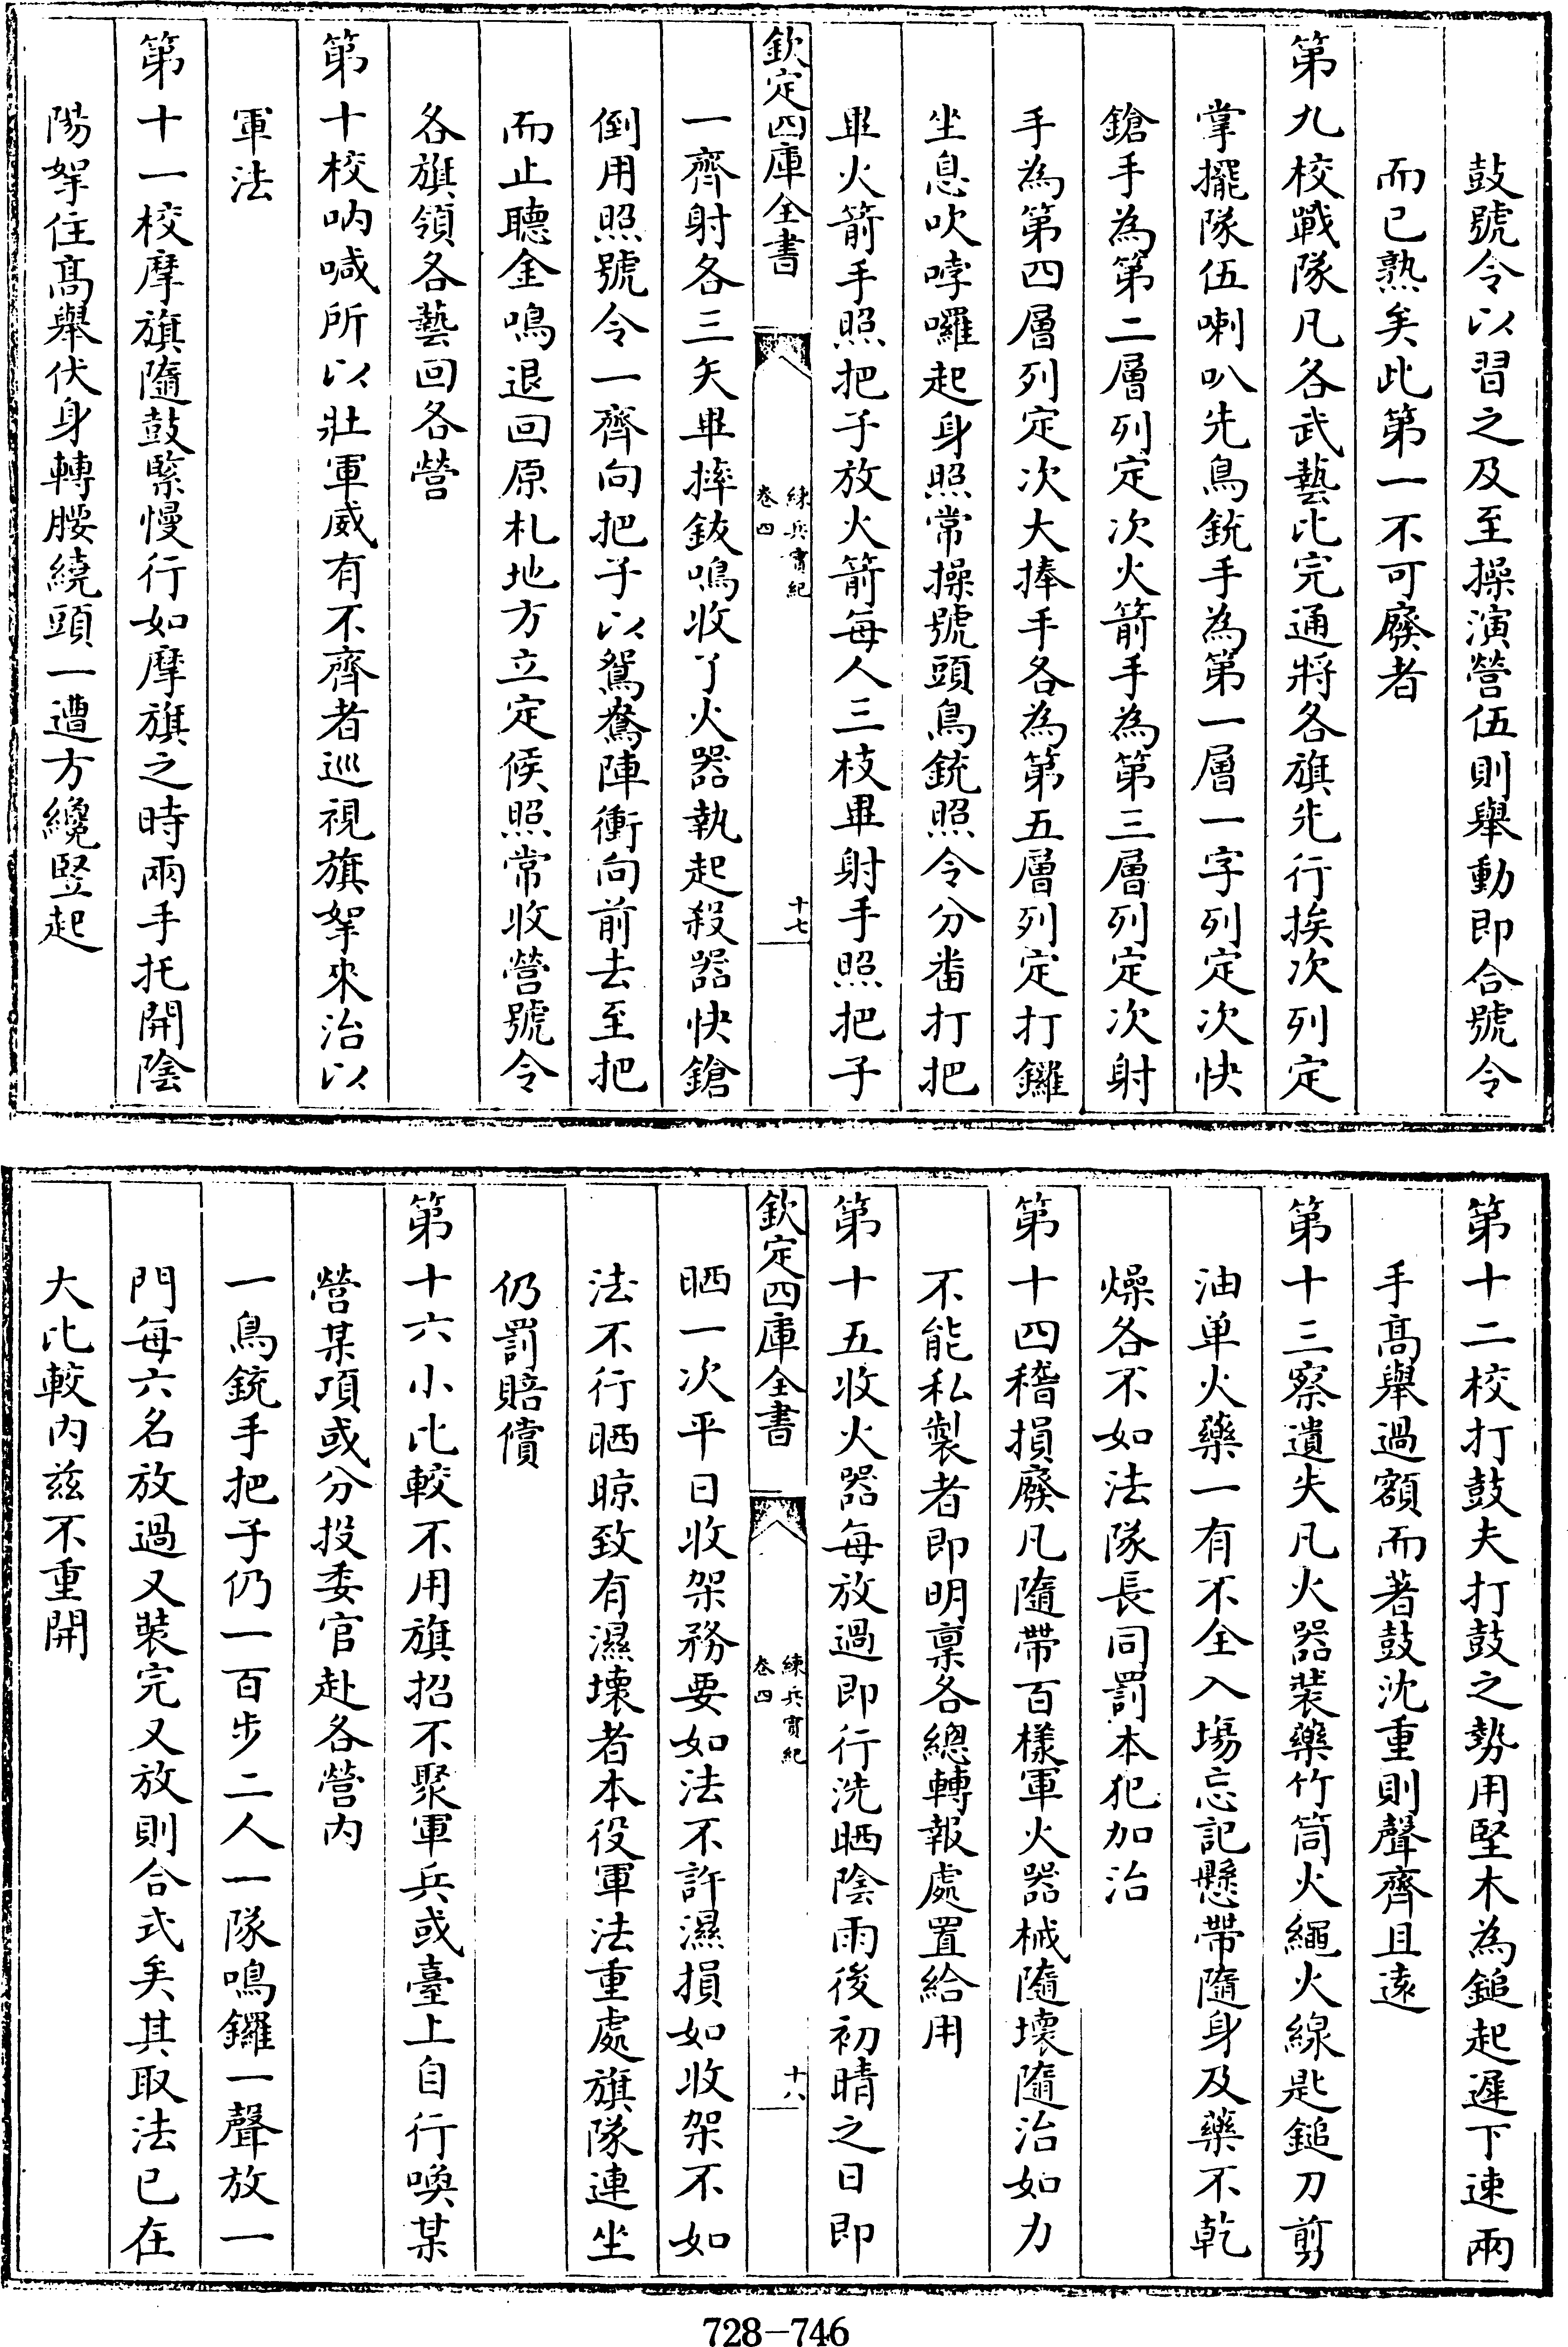 鼓號令以習之及至操演營伍則舉動即合號令
而已熟矣此第一不可廢者
第九校戰隊凡各武藝比完通將各旗先行挨次列定
掌擺隊伍喇叭先鳥銃手為第一層一字列定次快
鎗手為第二層列定次火箭手為第三層列定次射
手為第四層列定次大捧手各為第五層列定打鑼
坐息吹哱囉起身照常操號頭鳥銃照令分番打把
畢火箭手照把子放火箭每人三枝畢射手照把子
欽定四庫全書
練兵實紀
卷四
十七
一齊射各三矢畢摔鈸鳴收了火器執起殺器快鎗
倒用照號令一齊向把子以鴛鴦陣衝向前去至把
而止聽金鳴退回原札地方立定候照常收營號令
各旗領各藝回各營
第十校吶喊所以壯軍威有不齊者巡視旗拏來治以
軍法
第十一校摩旗隨鼓緊慢行如摩旗之時兩手托開陰
陽拏住髙舉伏身轉腰繞頭一遭方纔竪起
第十二校打鼓夫打鼓之勢用堅木為鎚起遲下速兩
手髙舉過額而著鼓沈重則聲齊且遠
第十三察遺失凡火器裝藥竹筒火繩火線匙鎚刀剪
油单火藥一有不全入塲忘記懸帶隨身及藥不乾
燥各不如法隊長同罰本犯加治
第十四稽損廢凡隨帶百樣軍火器械隨壞隨治如力
不能私製者即明禀各總轉報處置給用
第十五收火器每放過即行洗晒陰雨後初晴之日即
欽定四庫全書
練兵實紀
卷四
十八
晒一次平日收架務要如法不許濕損如收架不如
法不行晒晾致有濕壞者本役軍法重處旗隊連坐
仍罰賠償
第十六小比較不用旗招不聚軍兵或臺上自行喚某
營某項或分投委官赴各營内
一鳥銃手把子仍一百步二人一隊鳴鑼一聲放一
門每六名放過又裝完又放則合式矣其取法已在
大比較内兹不重開
728-746